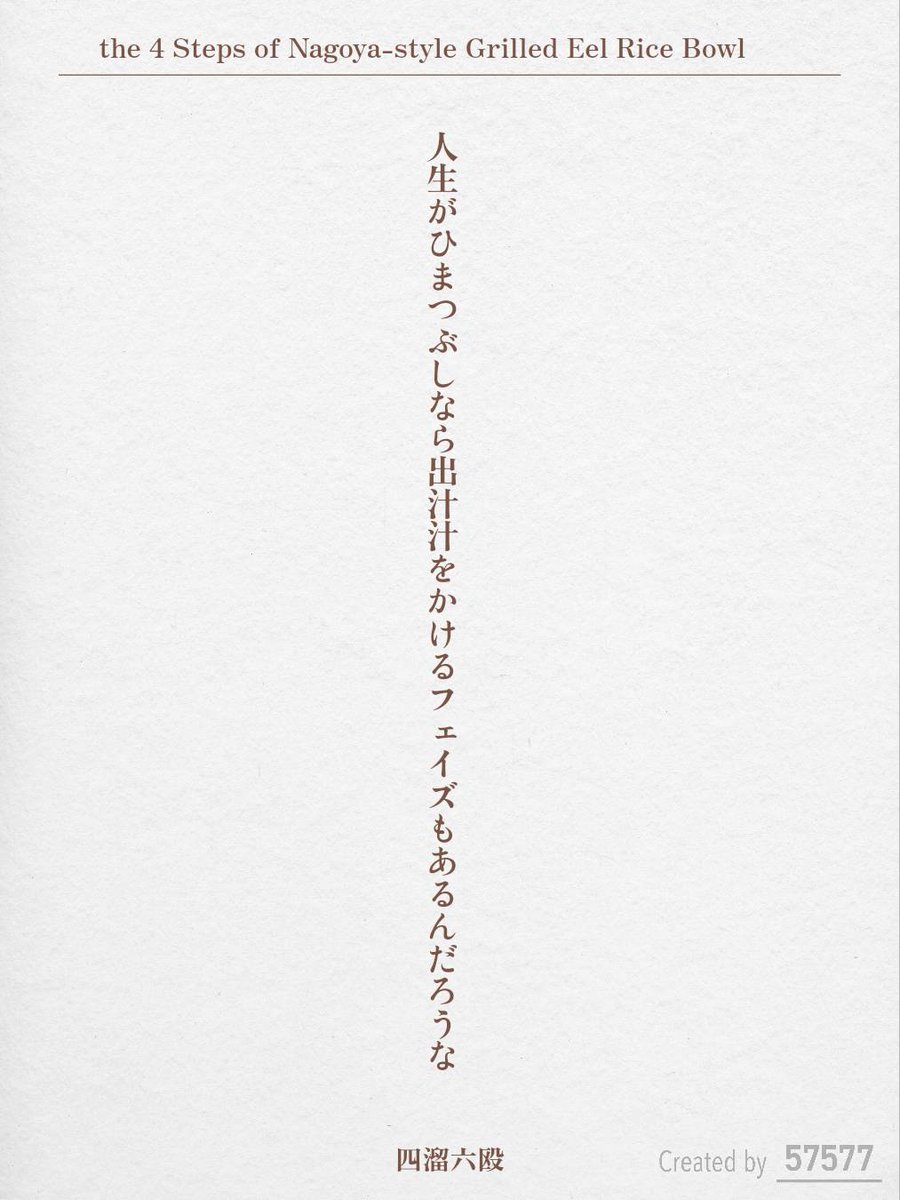 the 4 Steps of Nagoya-style Grilled Eel Rice Bowl
人生がひまつぶしなら出汁汁をかけるフェイズもあるんだろうな
四溜六殴
Created by 57577